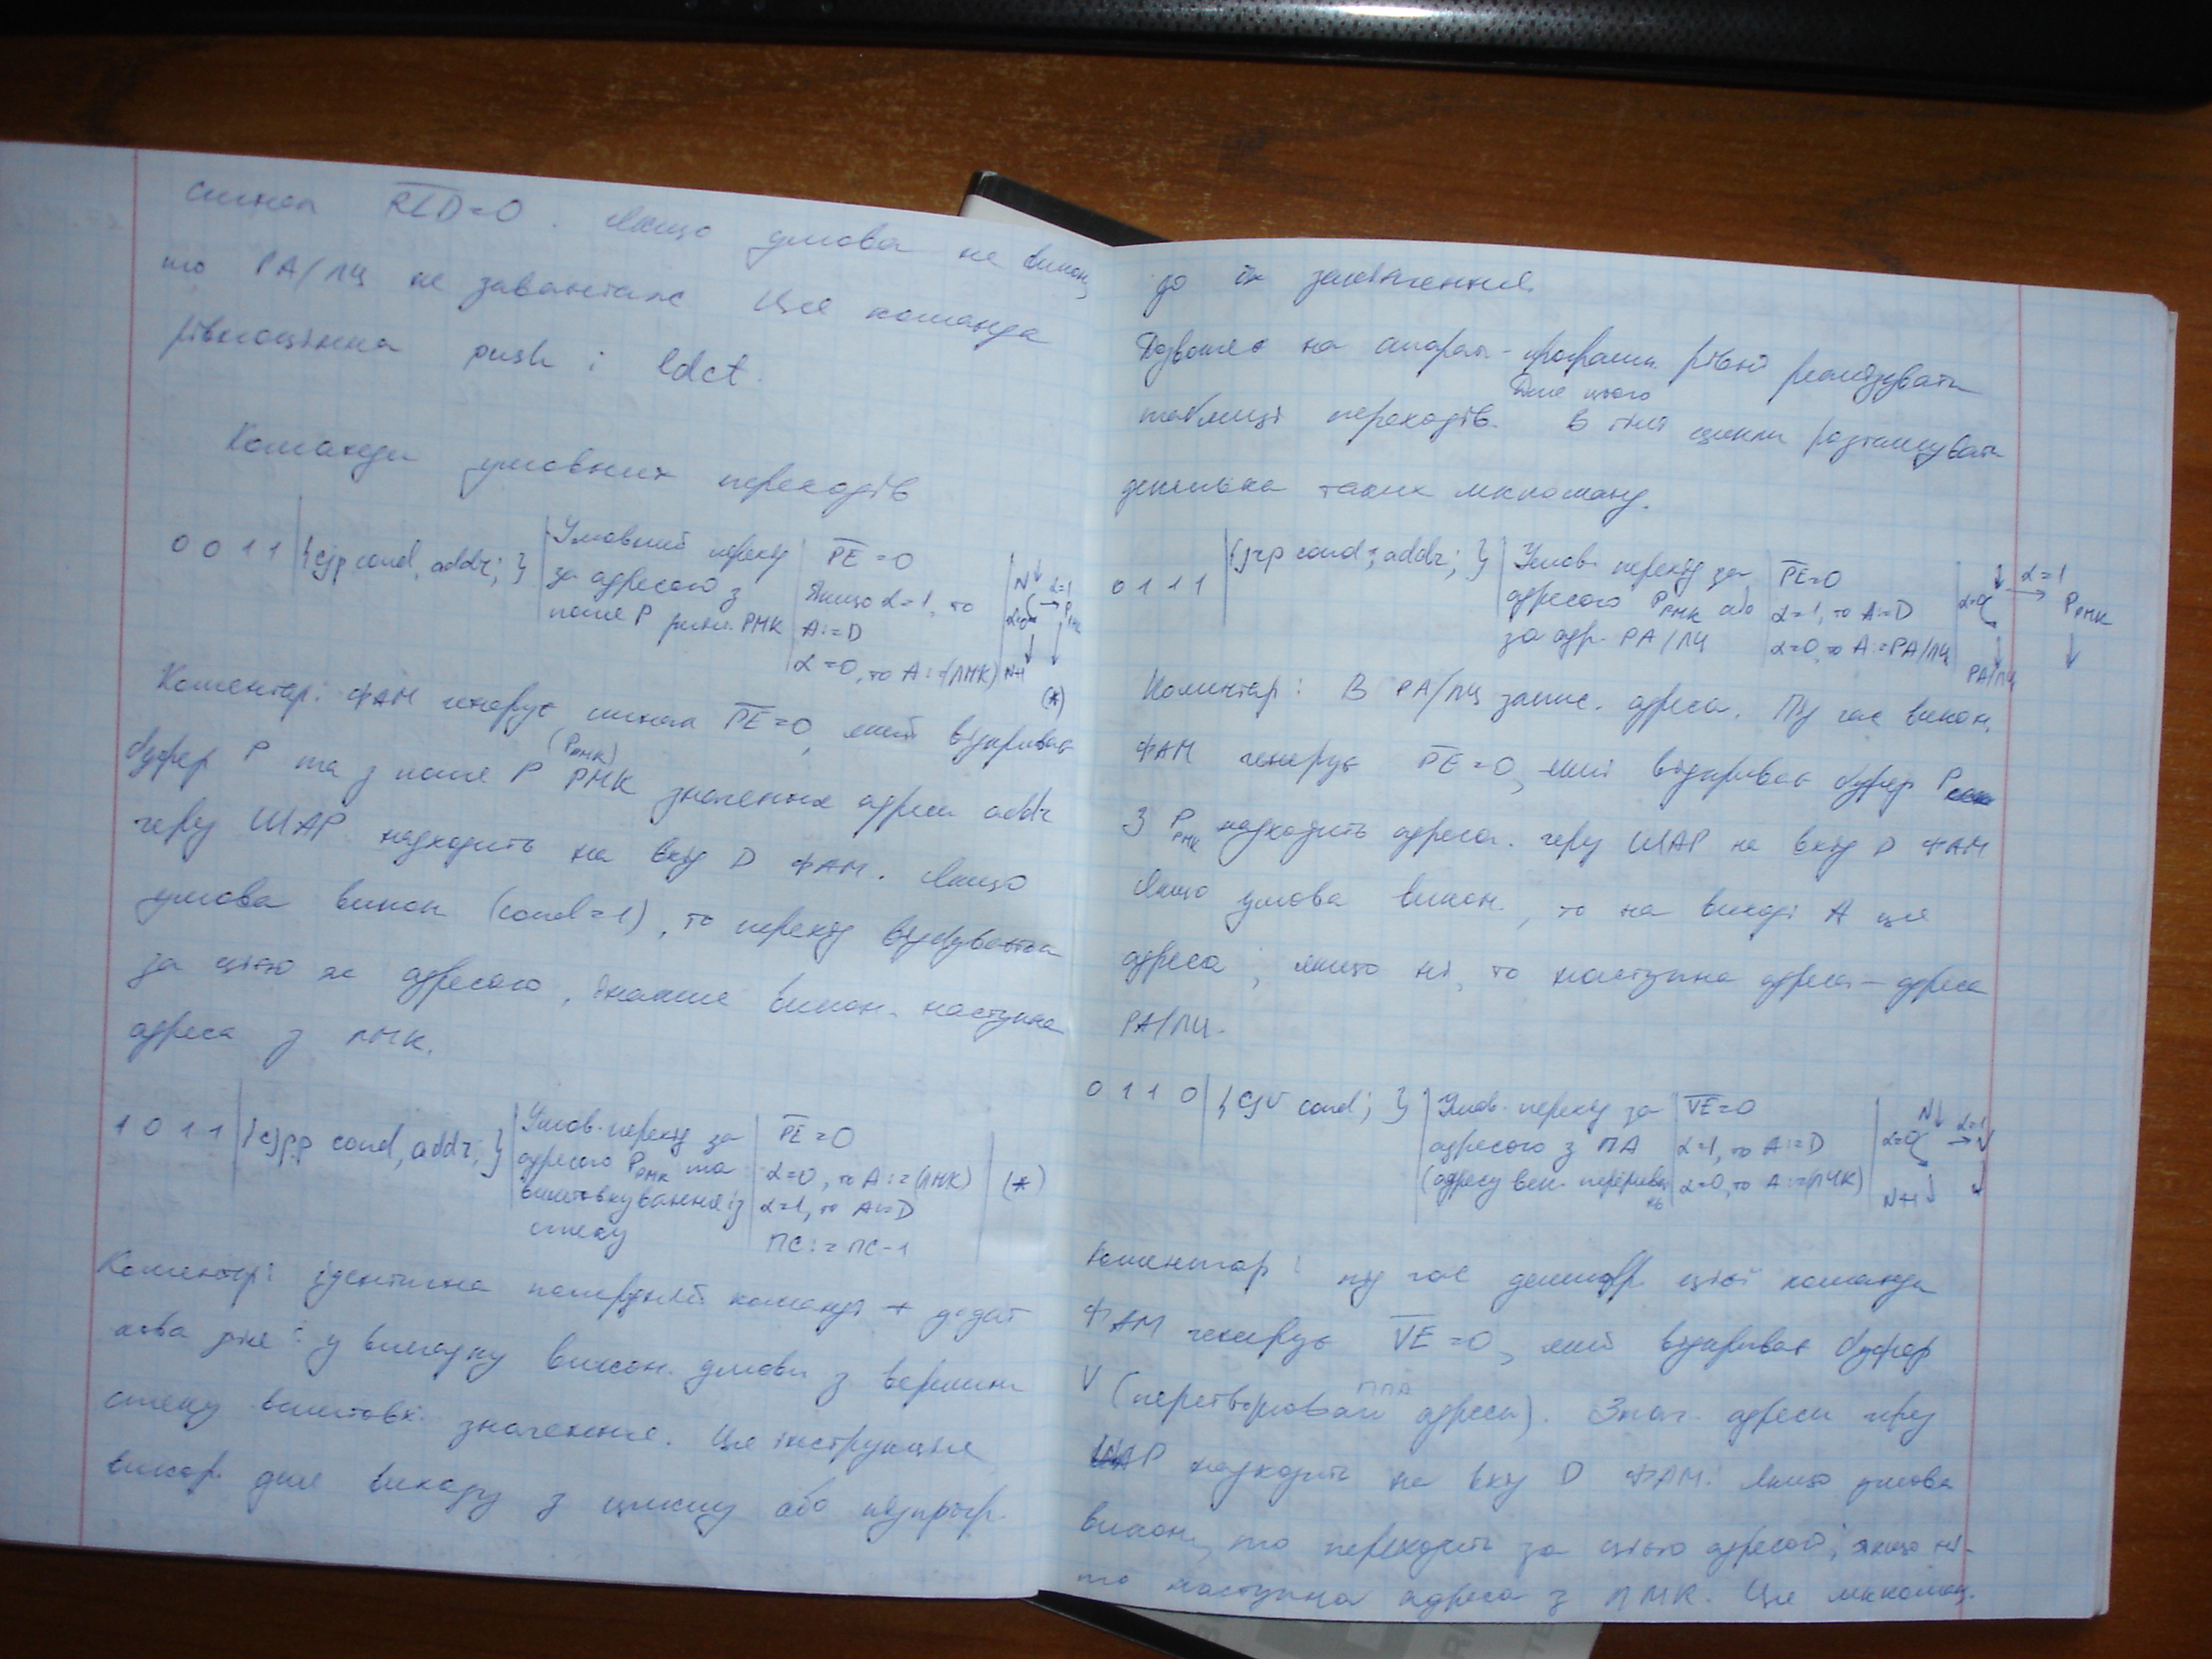 сигнал RLD=0. Якщо умова не викон,
то РА/ЛЦ не завантаж Ця команда
рівноцінна push і ldct.
Команди умовних переходів
0 0 1 1 {cjp cond, addr; }
Умовний перехід
за адресою з
поля Р РМК
PE = 0
Якщо α=1, то
A:=D
α=0, то A:=(ЛМК)
N α=1
α=0 → Р РМК
N+1
(*)
Коментар: ФАМ генерує сигнал PE=0, який відкриває
(Р РМК)
буфер Р та з поля Р РМК значення адреси addr
через ШАР надходить на вхід D ФАМ. Якщо
умова викон (cond=1), то перехід відбувається
за цією ж адресою, інакше викон. наступна
адреса з ЛМК.
1 0 1 1 {cjpp cond, addr; }
Умов. перехід за
адресою Р РМК та
виштовхування із
стеку
PE = 0
α=0, то A:=(ЛМК)
α=1, то A:=D
ПС:=ПС-1
(*)
Коментар: ідентична попередній команді + додат
кова дія: у випадку викон. умови з вершини
стеку виштовх. значення. Ця інструкція
викор. для виходу з циклу або підпрогр.
до їх
Дозволяє на апарат-програмн. рівні реалізувати
Для цього
таблиці переходів. В тілі цикли розташувати
декілька таких мккоманд.
0 1 1 1 {jrp cond, addr; }
Умов. перехід за
адресою Р РМК або
за адр. РА/ЛЦ
PE=0
α=1, то A:=D
α=0, то A:=РА/ЛЦ
α=1
α=0 → Р РМК
РА/ЛЦ
Коментар: В РА/ЛЦ запис. адреса. Під час викон.
ФАМ генерує PE=0, який відкриває буфер Р
З Р РМК надходить адреса. через ШАР на вхід D ФАМ
Якщо умова викон., то на виході А ця
адреса, якщо ні, то наступна адреса - адреса
РА/ЛЦ.
0 1 1 0 {cjv cond; }
Умов. перехід за
адресою з ПА
(адресу век. переривань
VE=0
α=1, то A:=D
α=0, то A:=(ЛЧК)
N α=1
α=0 → V
N+1
Коментар: під час дешифр. цієї команди
ФАМ генерує VE=0, який відкриває буфер
ППА
V (перетворювач адреси). Знач. адреси через
ШАР надходить на вхід D ФАМ. Якщо умова
викон, то переходить за цією адресою, якщо ні-
то наступна адреса з ЛМК. Ця мккоманд.